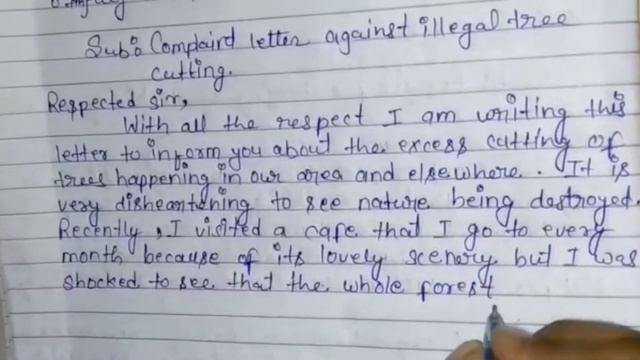 Sub: Complaint letter against illegal tree
cutting.
Respected Sir,
With all the respect I am writing this
letter to inform you about the excess cutting of
trees happening in our area and elsewhere. It is
very disheartening to see nature being destroyed.
Recently, I visited a cafe that I go to every
month because of its lovely scenery but I was
shocked to see that the whole forest